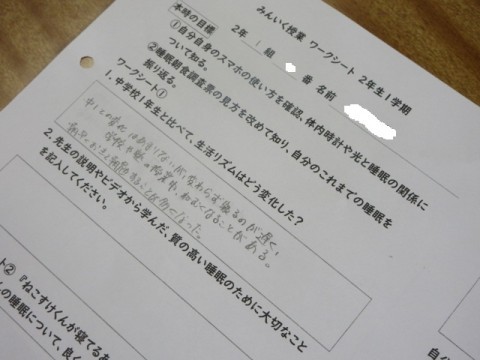 みんいく授業 ワークシート 2年生1学期
2年 1組 番 名前
本時の目標
①自分自身のスマホの使い方を確認、体内時計や光と睡眠の関係に
ついて知る。
②睡眠朝食調査票の見方を改めて知り、自分のこれまでの睡眠を
振り返る。
ワークシート①
1. 中学校1年生と比べて、生活リズムはどう変化した？
寝るのが遅く、
なることがある。
2. 先生の説明やビデオから学んだ、質の高い睡眠のために大切なこと
を記入してください。
ト② 『ねこすけくんが寝てるあ
の睡眠について、良く
自分